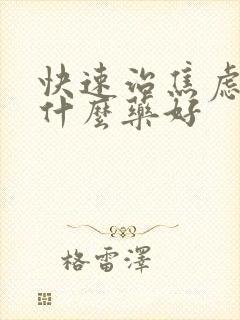 快速治焦虑
什麼藥好
格雷澤